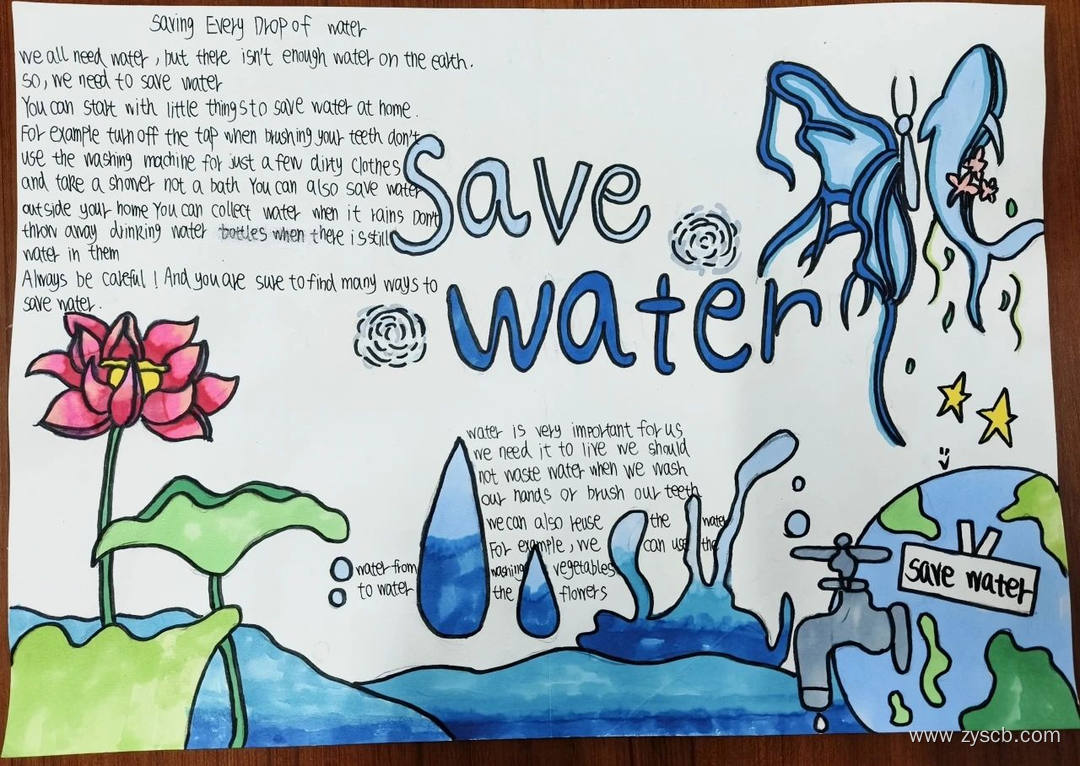 Saving Every Drop of water
we all need water, but there isn't enough water on the earth.
so, we need to save water
You can start with little things to save water at home.
For example turn off the tap when brushing your teeth don't
use the washing machine for just a few dirty clothes
and take a shower not a bath You can also save water
outside your home You can collect water when it rains Don't
throw away drinking water bottles when there is still
water in them
Always be careful! And you are sure to find many ways to
save water.
Save
water
water is very important for us
we need it to live we should
not waste water when we wash
our hands or brush our teeth
we can also reuse the water
For example, we can use the
water from washing vegetables
to water the flowers
save water
www.zyscb.com